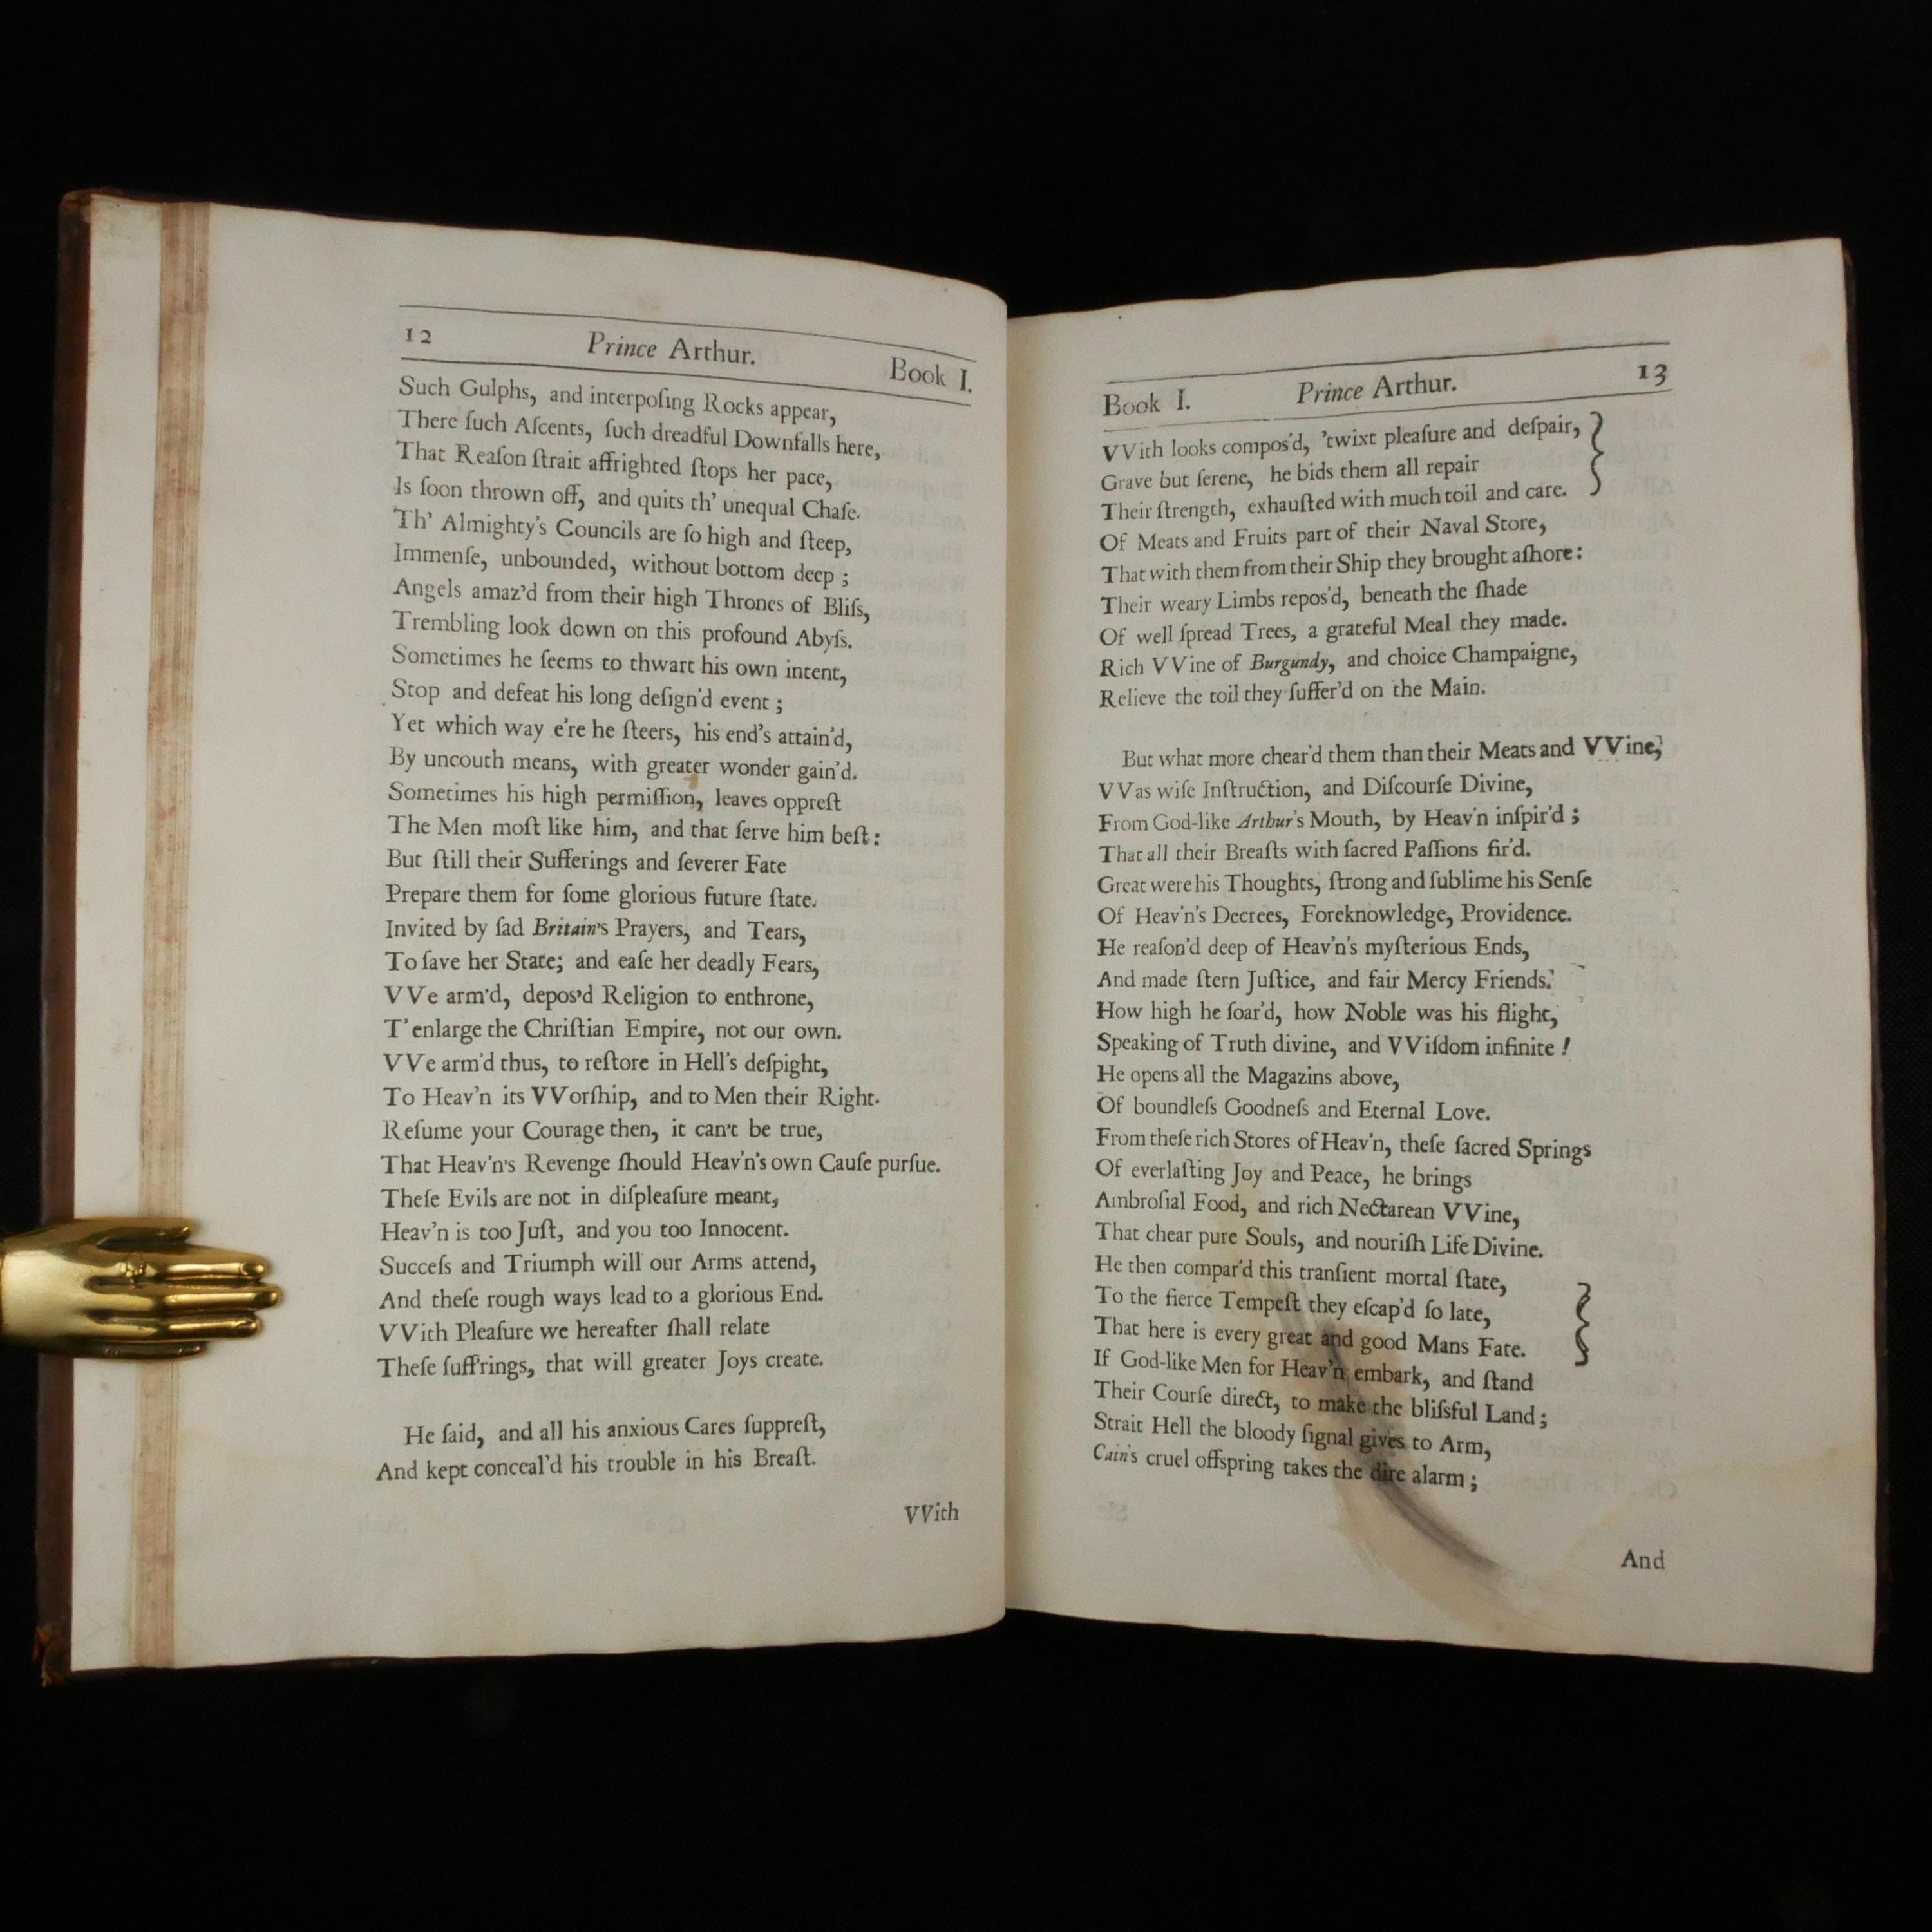 12 Prince Arthur. Book I.
Such Gulphs, and interpoſing Rocks appear,
There ſuch Aſcents, ſuch dreadful Downfalls here,
That Reaſon ſtrait affrighted ſtops her pace,
Is ſoon thrown off, and quits th' unequal Chaſe.
Th' Almighty's Councils are ſo high and ſteep,
Immenſe, unbounded, without bottom deep ;
Angels amaz'd from their high Thrones of Bliſs,
Trembling look down on this profound Abyſs.
Sometimes he ſeems to thwart his own intent,
Stop and defeat his long deſign'd event ;
Yet which way e're he ſteers, his end's attain'd,
By uncouth means, with greater wonder gain'd.
Sometimes his high permiſſion, leaves oppreſt
The Men moſt like him, and that ſerve him beſt :
But ſtill their Sufferings and ſeverer Fate
Prepare them for ſome glorious future ſtate.
Invited by ſad Britain's Prayers, and Tears,
To ſave her State; and eaſe her deadly Fears,
VVe arm'd, depos'd Religion to enthrone,
T' enlarge the Chriſtian Empire, not our own.
VVe arm'd thus, to reſtore in Hell's deſpight,
To Heav'n its VVorſhip, and to Men their Right.
Reſume your Courage then, it can't be true,
That Heav'n's Revenge ſhould Heav'n's own Cauſe purſue.
Theſe Evils are not in diſpleaſure meant,
Heav'n is too Juſt, and you too Innocent.
Succeſs and Triumph will our Arms attend,
And theſe rough ways lead to a glorious End.
VVith Pleaſure we hereafter ſhall relate
Theſe ſuff'rings, that will greater Joys create.
He ſaid, and all his anxious Cares ſuppreſt,
And kept conceal'd his trouble in his Breaſt.
VVith
Book I. Prince Arthur. 13
VVith looks compos'd, 'twixt pleaſure and deſpair,
Grave but ſerene, he bids them all repair
Their ſtrength, exhauſted with much toil and care.
Of Meats and Fruits part of their Naval Store,
That with them from their Ship they brought aſhore :
Their weary Limbs repos'd, beneath the ſhade
Of well ſpread Trees, a grateful Meal they made.
Rich VVine of Burgundy, and choice Champaigne,
Relieve the toil they ſuffer'd on the Main.
But what more chear'd them than their Meats and VVine,
VVas wiſe Inſtruction, and Diſcourſe Divine,
From God-like Arthur's Mouth, by Heav'n inſpir'd ;
That all their Breaſts with ſacred Paſſions fir'd.
Great were his Thoughts, ſtrong and ſublime his Senſe
Of Heav'n's Decrees, Foreknowledge, Providence.
He reaſon'd deep of Heav'n's myſterious Ends,
And made ſtern Juſtice, and fair Mercy Friends.
How high he ſoar'd, how Noble was his flight,
Speaking of Truth divine, and VViſdom infinite !
He opens all the Magazins above,
Of boundleſs Goodneſs and Eternal Love.
From theſe rich Stores of Heav'n, theſe ſacred Springs
Of everlaſting Joy and Peace, he brings
Ambroſial Food, and rich Nectarean VVine,
That chear pure Souls, and nouriſh Life Divine.
He then compar'd this tranſient mortal ſtate,
To the fierce Tempeſt they eſcap'd ſo late,
That here is every great and good Mans Fate.
If God-like Men for Heav'n embark, and ſtand
Their Courſe direct, to make the bliſsful Land ;
Strait Hell the bloody ſignal gives to Arm,
Cain's cruel offspring takes the dire alarm ;
And